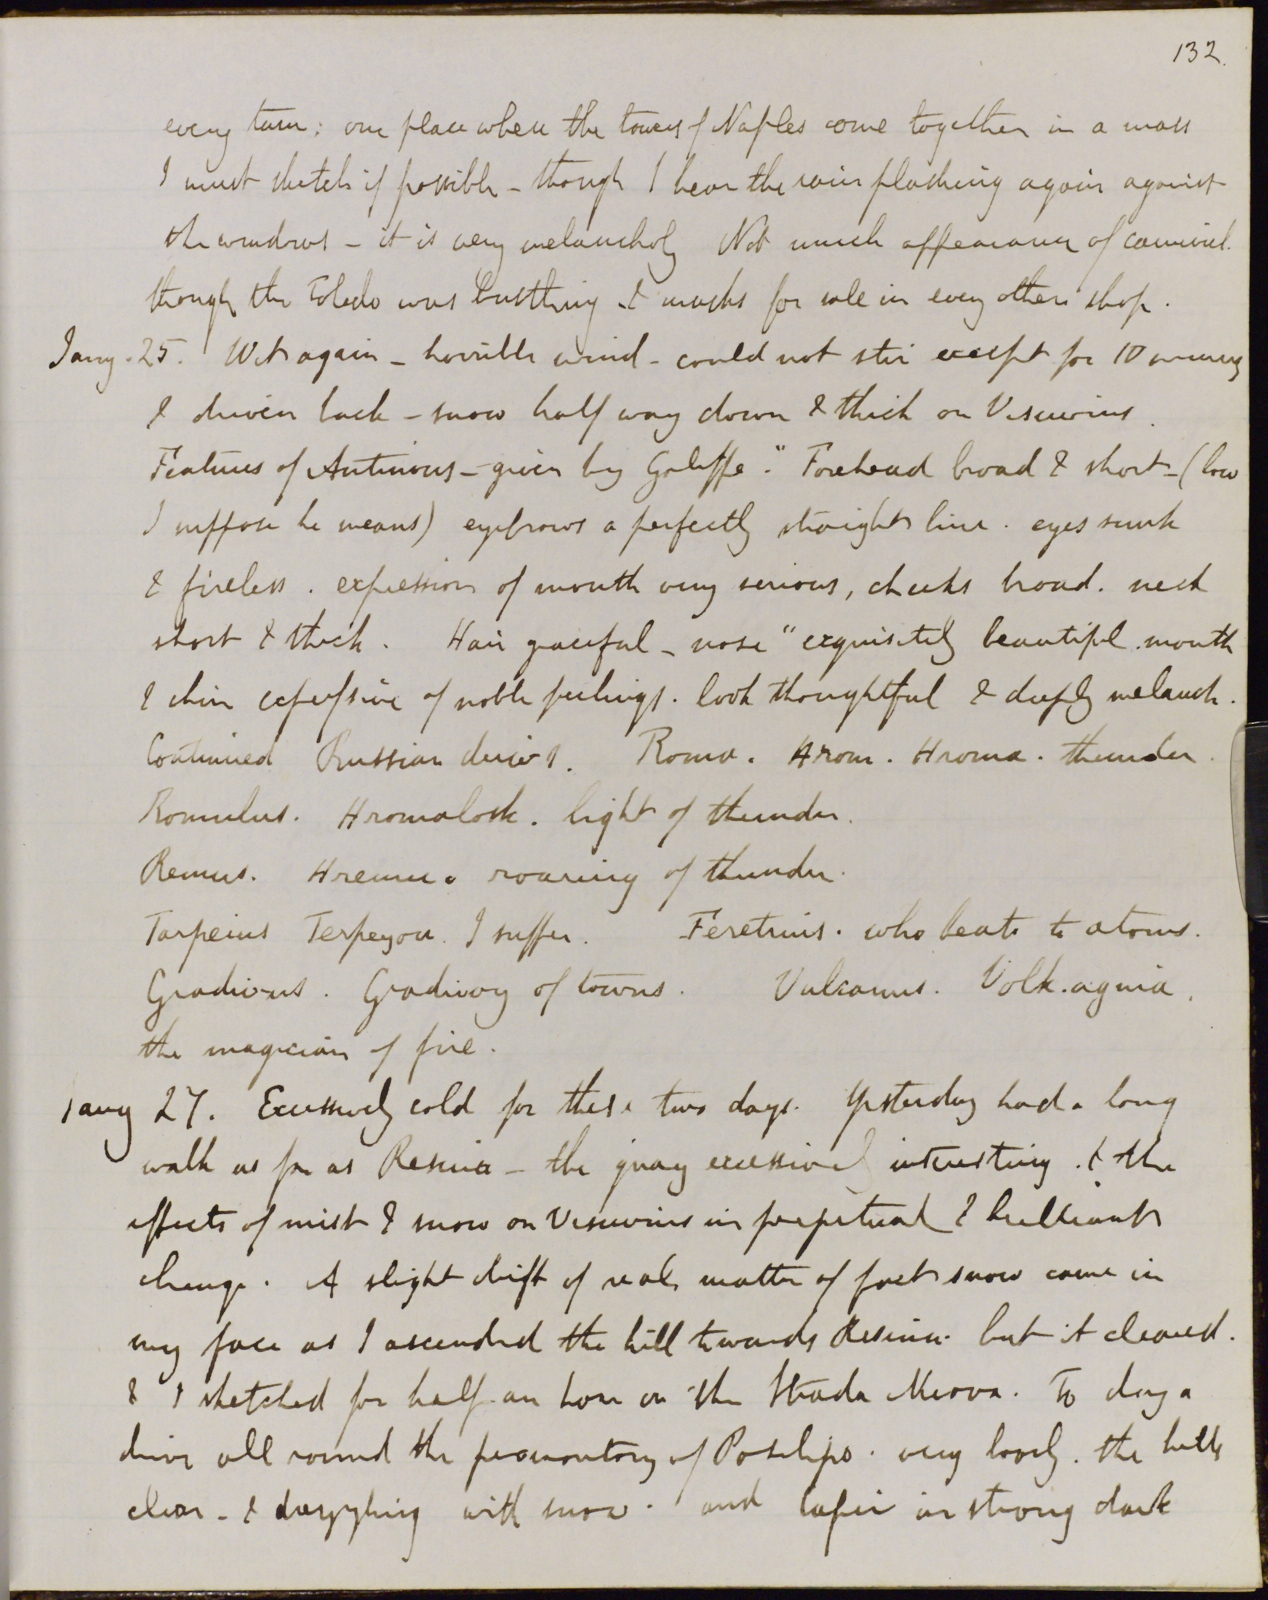 132.
every turn; one place where the towers of Naples come together in a mass
I must sketch if possible - though I hear the rain plashing again against
the windows - it is very melancholy Not much appearance of carnival.
though the Toledo was bustling & masks for sale in every other shop.
Jany. 25. Wet again - horrible wind - could not stir except for 10 minutes
& driven back - snow half way down & thick on Vesuvius.
Features of Antinous - given by Galiffe. " Forehead broad & short - (low
I suppose he means) eyebrows a perfectly straight line. eyes sunk
& fireless. expression of mouth very serious, cheeks broad. neck
short & thick. Hair graceful - nose " exquisitely beautiful. mouth
& chin expressive of noble feelings. look thoughtful & deeply melanch.
Continued Russian derivs. Roma. Hrom. Hroma. thunder.
Romulus. Hromolosk. light of thunder.
Remus. Hremu. roaring of thunder.
Tarpeius Terpeyou. I suffer. Feretrius. who beats to atoms.
Gradivus. Gradivoy of towns. Vulcanus. Volk.agnia.
the magician of fire.
Jany 27. Excessively cold for these two days. Yesterday had a long
walk as far as Resina - the quay excessively interesting. & the
effects of mist & snow on Vesuvius in perpetual & brilliant
change. A slight drift of real, matter of fact snow came in
my face as I ascended the hill towards Resina. but it cleared.
& I sketched for half an hour on the Strada Nuova. To day a
drive all round the promontory of Posilipo. very lovely. the hills
clear - & everything with snow. and Capri in strong dark